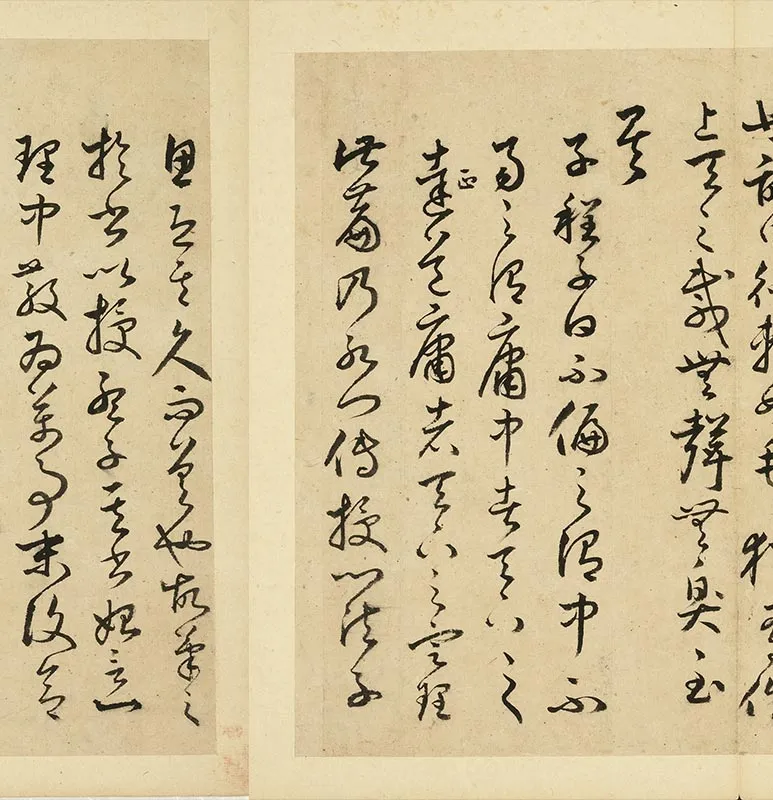 德輶如毛猶有倫
上天之載無聲無臭至
矣
子程子曰不偏之謂中不
易之謂庸中者天下之
達正道庸者天下之定理
此篇乃孔門傳授心法子
思恐其久而差也故筆之
於書以授孟子其書始言一
理中散為萬事末復合